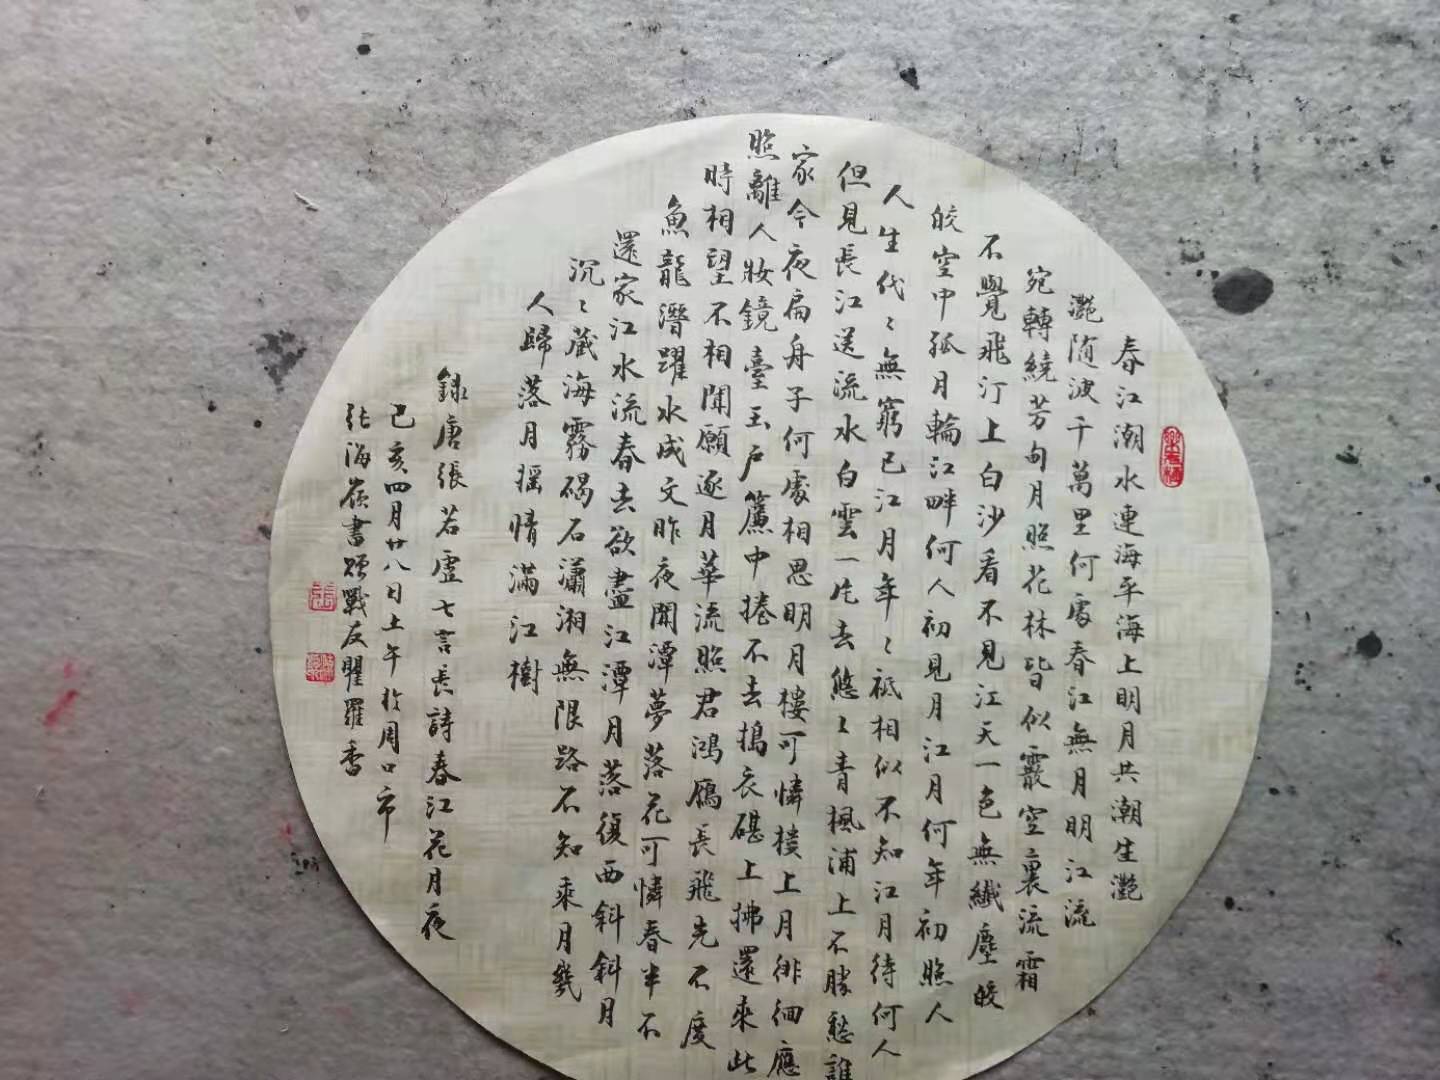 春江潮水連海平海上明月共潮生灔
灔随波千萬里何處春江無月明江流
宛轉繞芳甸月照花林皆似霰空裏流霜
不覺飛汀上白沙看不見江天一色無纖塵皎
皎空中孤月輪江畔何人初見月江月何年初照人
人生代〻無窮已江月年〻祗相似不知江月待何人
但見長江送流水白雲一片去悠〻青楓浦上不勝愁誰
家今夜扁舟子何處相思明月樓可憐樓上月徘徊應
照離人妝鏡臺玉户簾中捲不去搗衣碪上拂還來此
時相望不相聞願逐月華流照君鴻鴈長飛光不度
魚龍潛躍水成文昨夜閒潭夢落花可憐春半不
還家江水流春去欲盡江潭月落復西斜斜月
沉〻藏海霧碣石瀟湘無限路不知乘月幾
人歸落月摇情滿江樹
録唐張若虛七言長詩春江花月夜
己亥四月廿八日上午於周口市
張海嶺書贈戰友瞿羅香